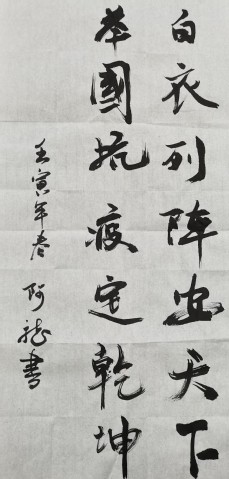 白衣列陣安天下
举國抗疫定乾坤
壬寅年春 阿龍書